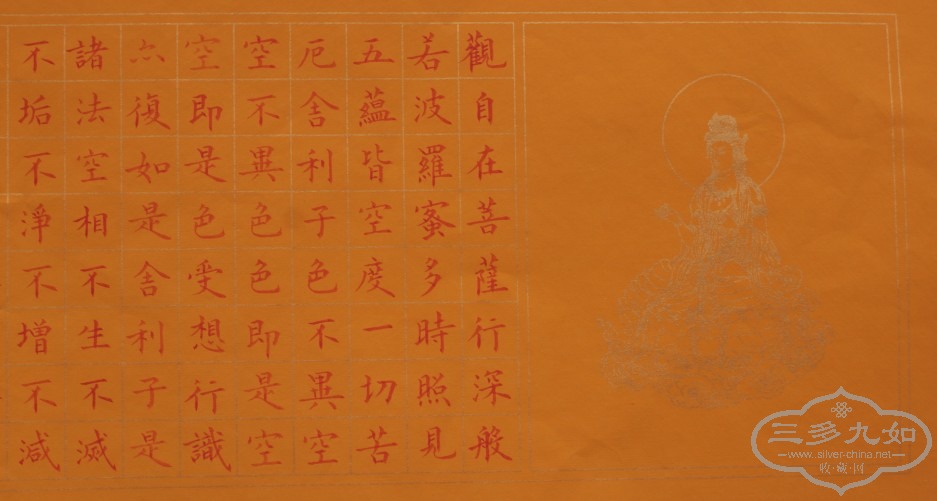 觀自在菩薩行深般
若波羅蜜多時照見
五蘊皆空度一切苦
厄舍利子色不異空
空不異色色即是空
空即是色受想行識
亦復如是舍利子是
諸法空相不生不滅
不垢不淨不增不減
三多九如
www.silver-china.net
收·藏·网